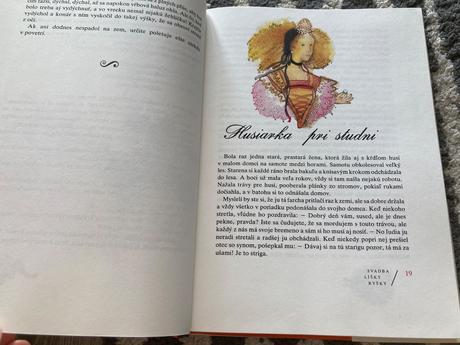 dýchal, dýchal, až sa napokon vŕbová halúz ohla
treba aj vydýchnuť, a vo vrecku nemal nijakú
vydýchol a konár s ním vyskočil do takej výšky, že sa
z očí.
Ak ani dodnes nespadol na zem, určite poletuje ešte
v povetrí.
Husiarka pri studni
Bola raz jedna stará, prastará žena, ktorá žila aj s kŕdľom husí
v malom domci na samote medzi horami. Samotu obkolesoval veľký
les. Starena si každé ráno brala bakuľu a knísavým krokom odchádzala
do lesa. A hoci už mala veľa rokov, vždy si tam našla nejakú robotu.
Nažala trávy pre husi, pooberala plánky zo stromov, pokiaľ rukami
dočiahla, a to všetko si na chrbte odnášala domov.
Mysleli by ste si, že ju tá ťarcha pritlačí raz k zemi, ale sa dobre držala
a vždy všetko v poriadku podonášala do svojho domca. Keď niekoho
stretla, vľúdne ho pozdravila: — Dobrý deň vám, sused, ale je dnes
pekne, pravda? Iste sa čudujete, že sa mordujem s touto trávou, ale
každý z nás má svoje bremeno a sám si ho musí aj nosiť. — No ľudia ju
neradi stretali a radšej ju obchádzali. Keď niekedy popri nej prešiel
otec so synom, pošepkal mu: — Dávaj si na tú starigu pozor, tá má za
ušami! Je to striga.
SVADBA
LÍŠKY
RYŠKY
19